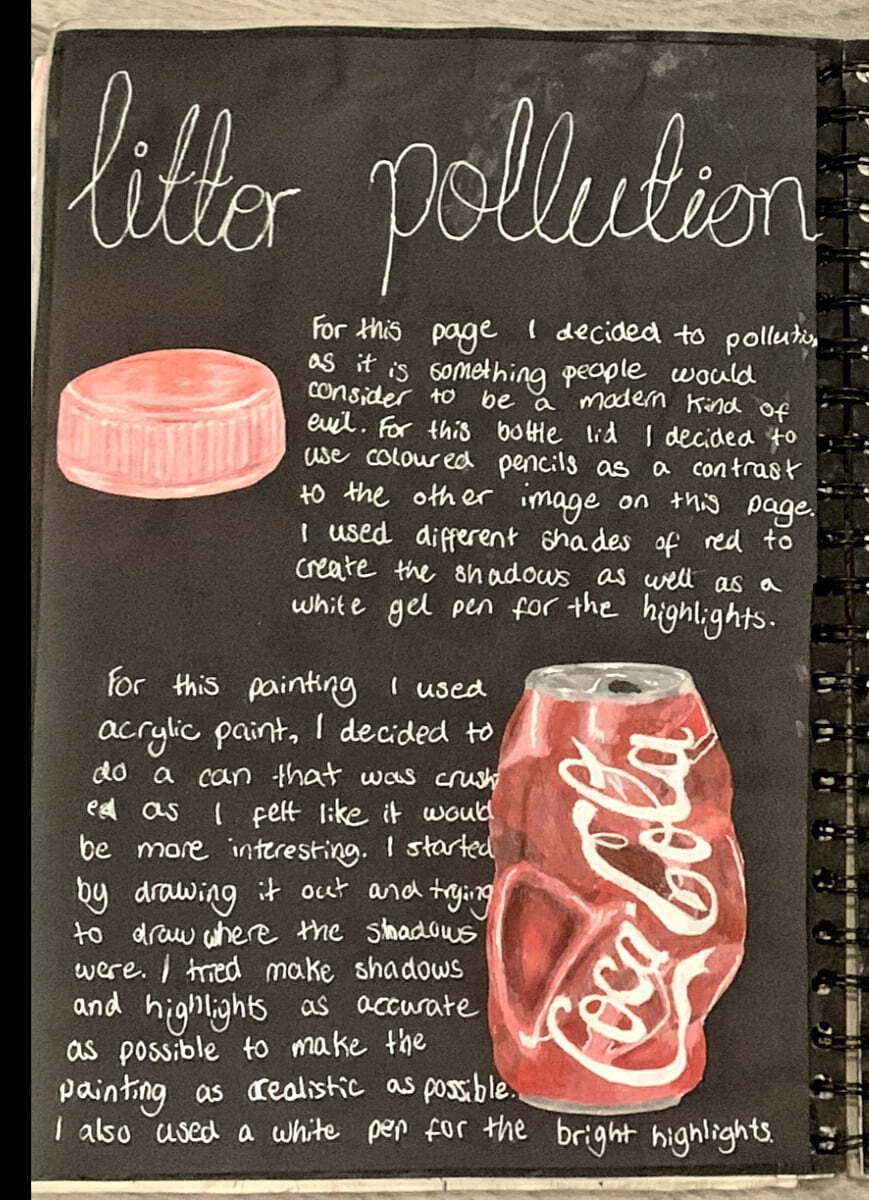 litter pollution
For this page I decided to pollution
as it is something people would
consider to be a modern kind of
evil. For this bottle lid I decided to
use coloured pencils as a contrast
to the other image on this page.
I used different shades of red to
create the shadows as well as a
white gel pen for the highlights.
For this painting I used
acrylic paint, I decided to
do a can that was crush
ed as I felt like it would
be more interesting. I started
by drawing it out and trying
to draw where the shadows
were. I tried make shadows
and highlights as accurate
as possible to make the
painting as realistic as possible.
I also used a white pen for the bright highlights.
Coca-Cola